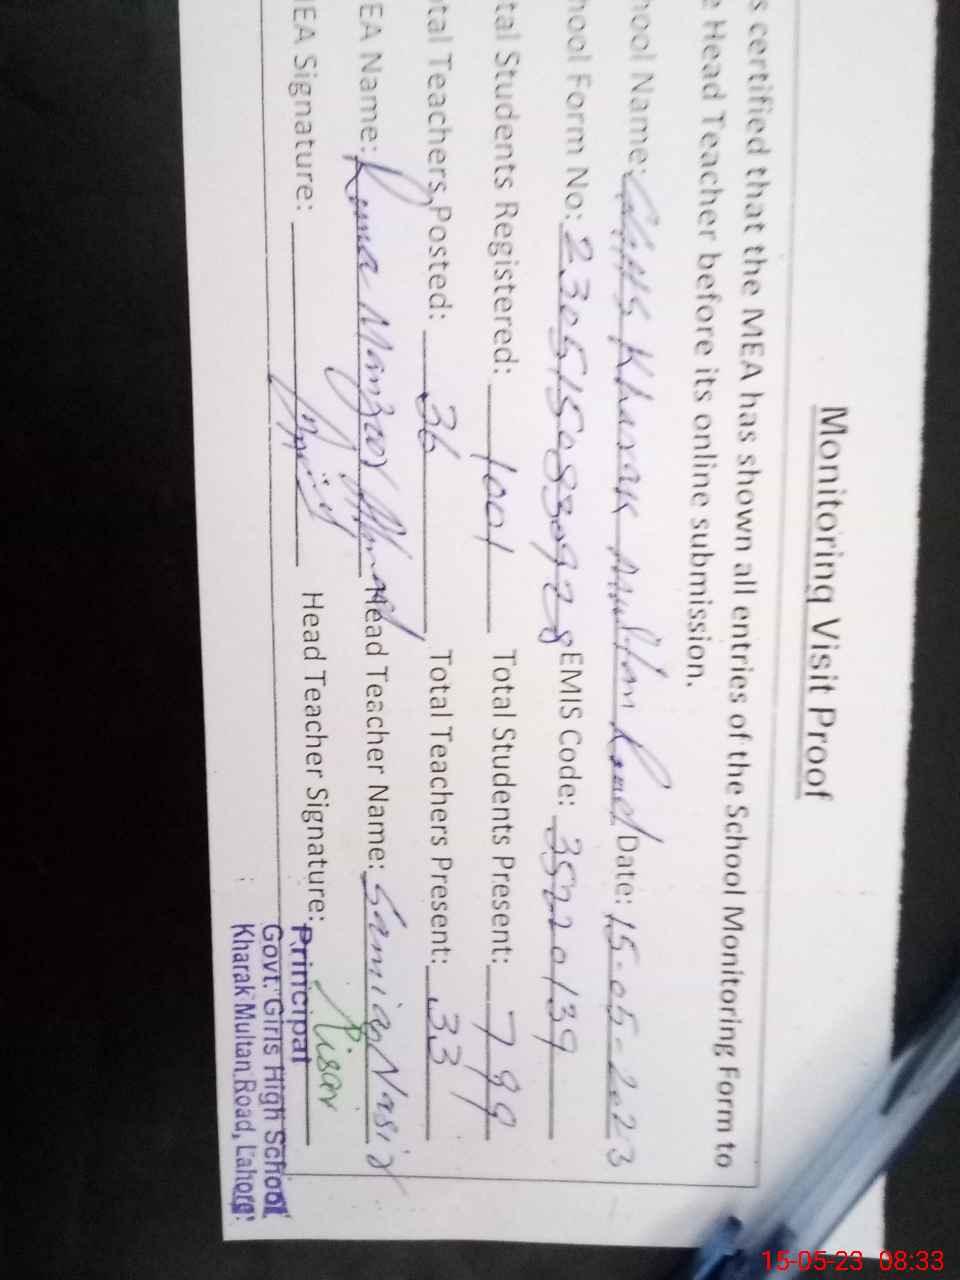 Monitoring Visit Proof
s certified that the MEA has shown all entries of the School Monitoring Form to
e Head Teacher before its online submission.
hool Name: GGHS Kharak Multan Road Date: 15-05-2023
hool Form No: EMIS Code: 35220139
tal Students Registered: 1001 Total Students Present: 799
otal Teachers Posted: 36 Total Teachers Present: 33
EA Name: Rana Manzoor Ahmad Head Teacher Name: Samia Nasir
EA Signature: Head Teacher Signature:
Principal
Govt. Girls High School
Kharak Multan Road, Lahore.
15-05-23 08:33